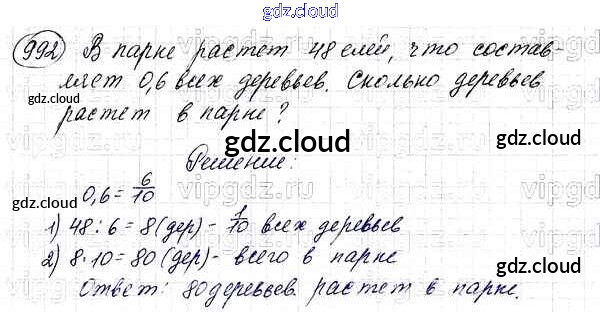 gdz.cloud
992 В парке растет 48 елей, что состав-
ляет 0,6 всех деревьев. Сколько деревьев
gdz.cloud
растет в парке?
gdz.cloud
gdz.cloud
Решение:
0,6 = 6/10
gdz.cloud
gdz.cloud
1) 48 : 6 = 8 (дер) - 1/10 всех деревьев
2) 8 · 10 = 80 (дер) - всего в парке
gdz.cloud
gdz.cloud
Ответ: 80 деревьев растет в парке.
gdz.cloud